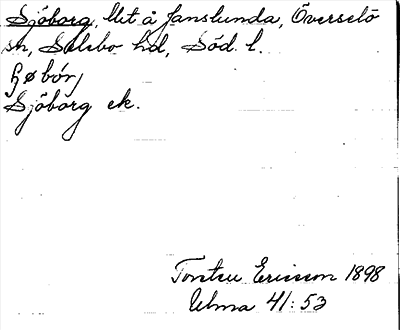 Sjöborg, Utt å Janslunda, Överselö
sn, Selebo hd, Söd. l.
Sjöborg ek.
Torsten Ericsson 1898
Ulma 41:53